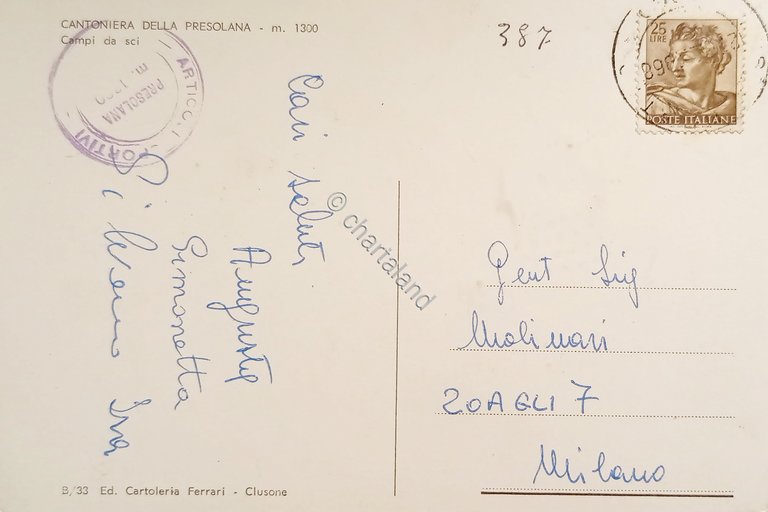 CANTONIERA DELLA PRESOLANA - m. 1300
Campi da sci
387
25
LIRE
POSTE ITALIANE
ARTICOLI SPORTIVI
PRESOLANA
m. 1300
Cari saluti
Augusto
Simonetta
© chartaland
Gent Sig
Molinari
ZOAGLI 7
Milano
B/33 Ed. Cartoleria Ferrari - Clusone